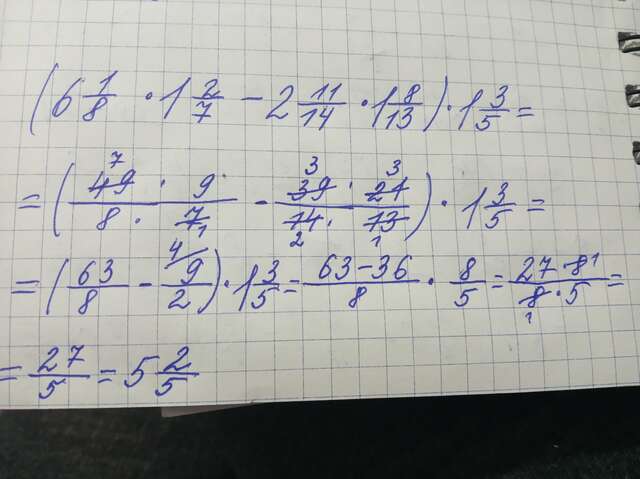 (6 1/8 · 1 2/7 - 2 11/14 · 1 8/13) · 1 3/5 =
= (49 · 9 / 8 · 7 - 39 · 21 / 14 · 13) · 1 3/5 =
= (63/8 - 9/2) · 1 3/5 = 63-36/8 · 8/5 = 27·8/8·5 =
= 27/5 = 5 2/5